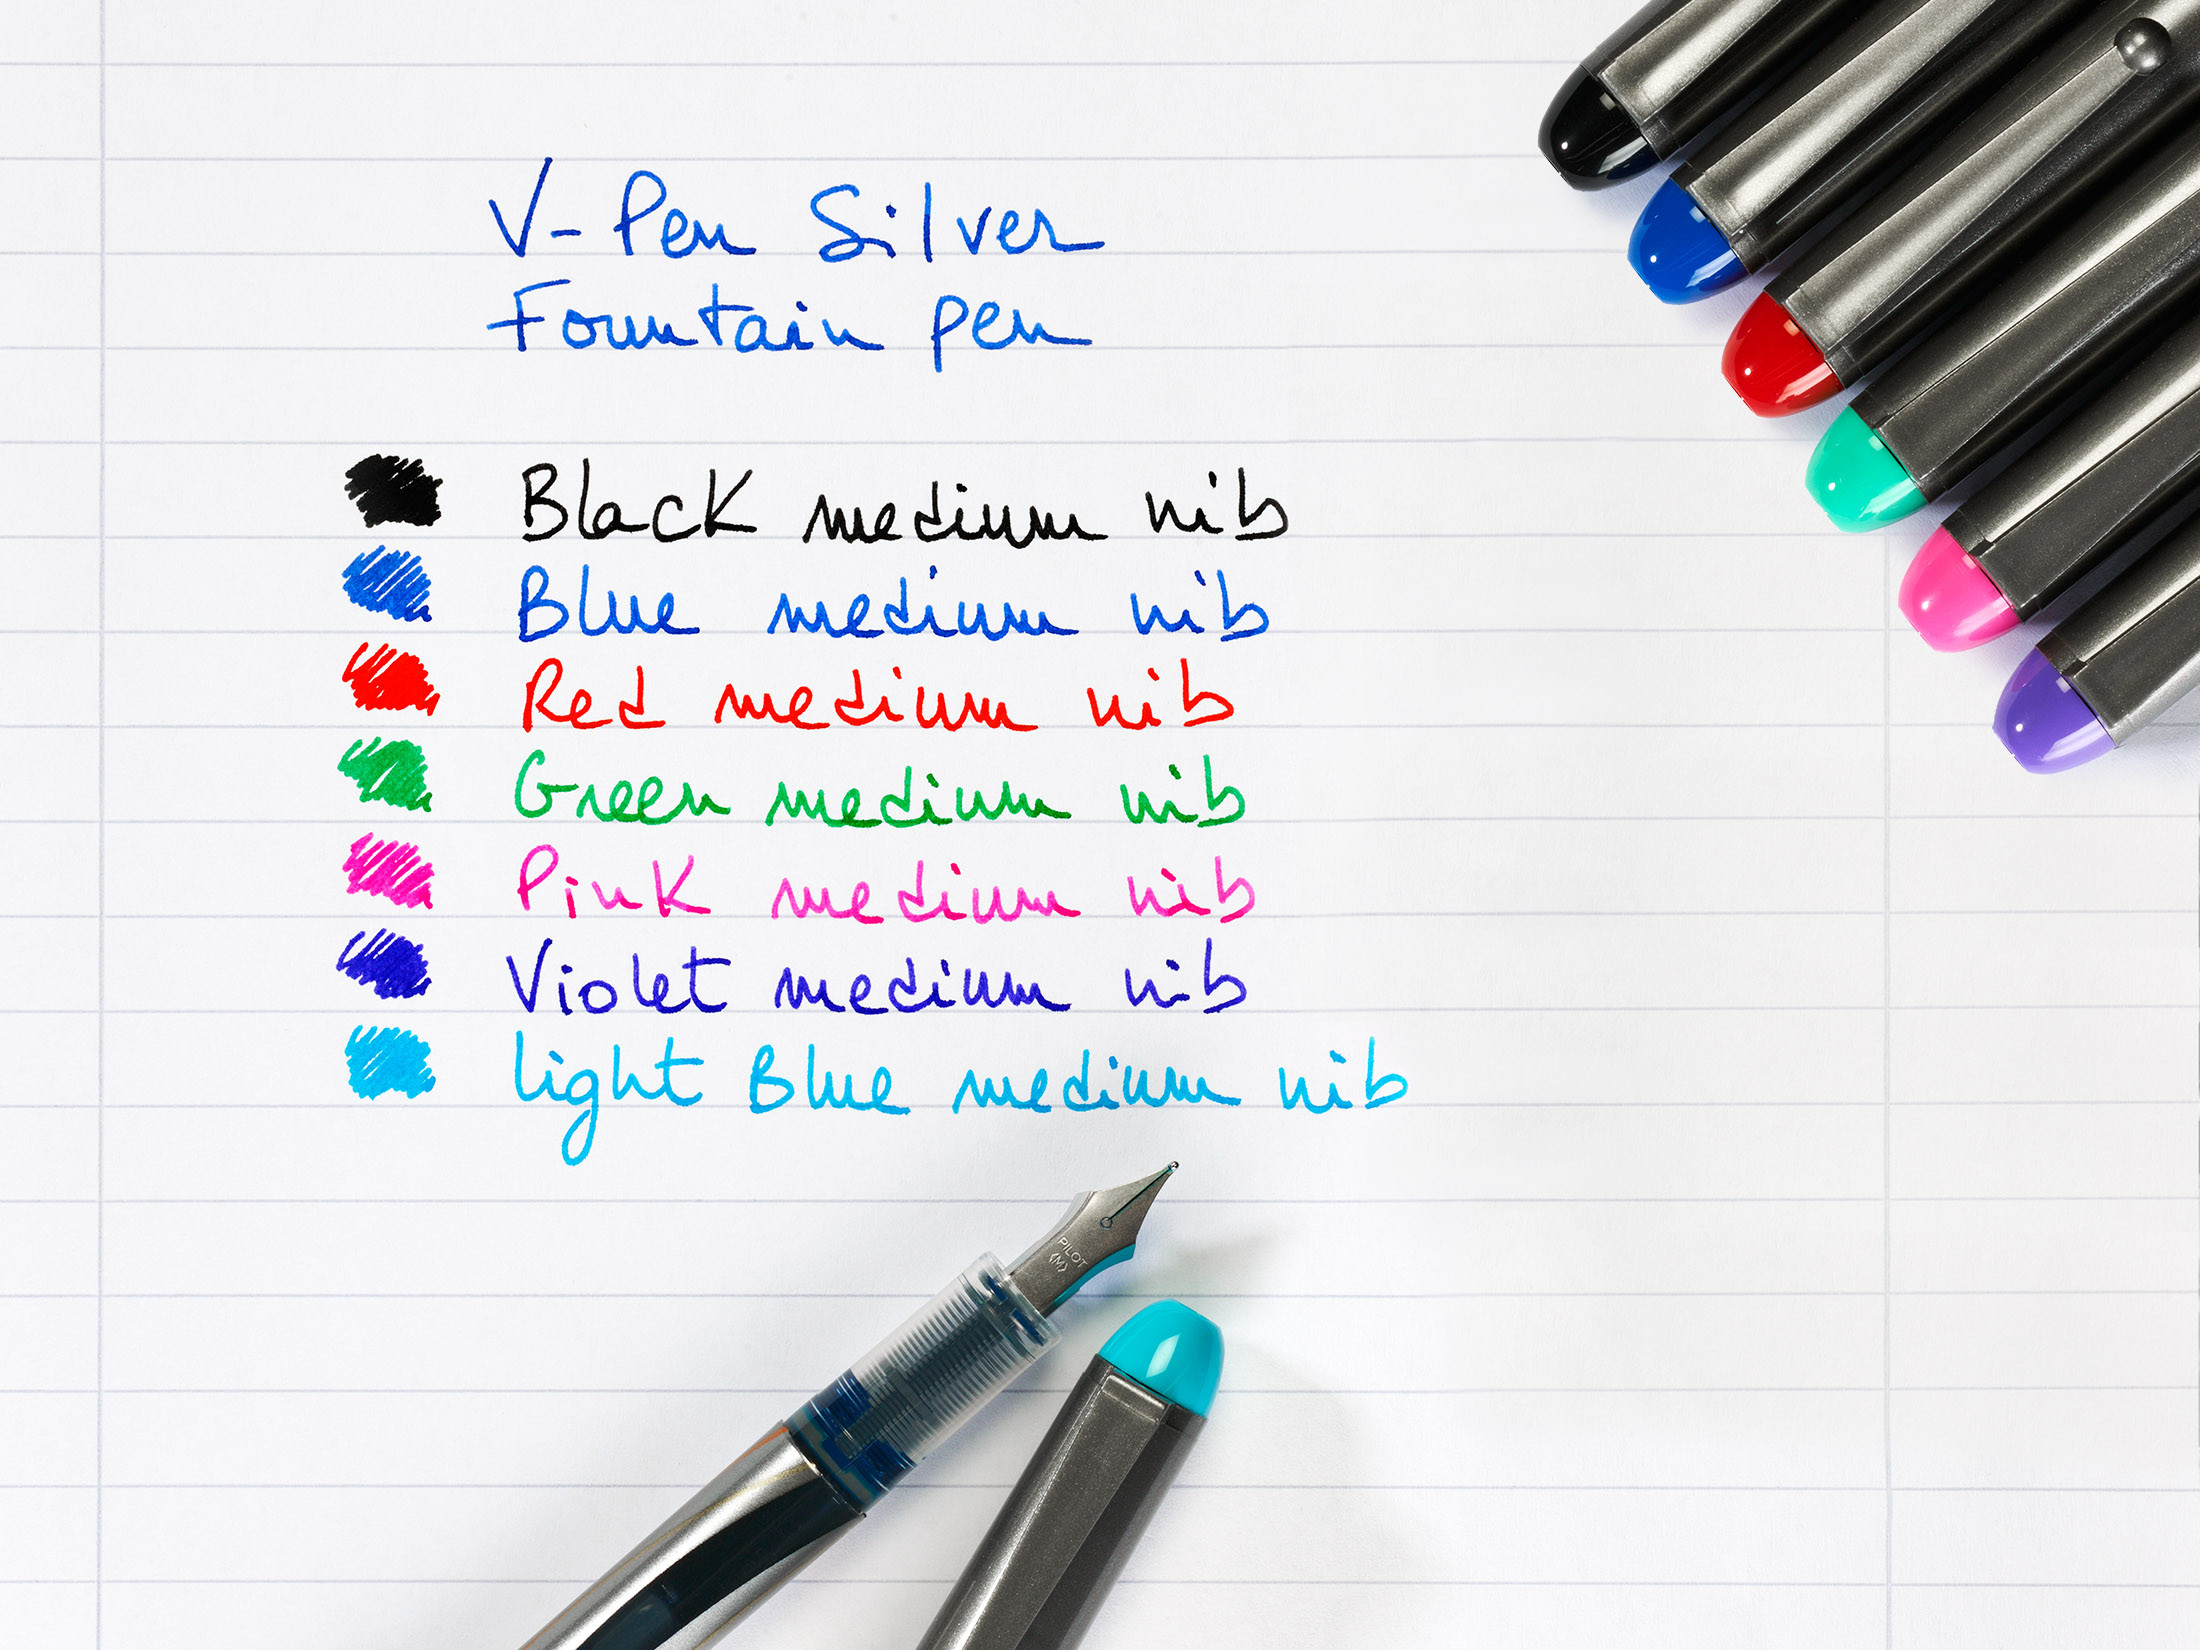 V-Pen Silver
Fountain pen
Black medium nib
Blue medium nib
Red medium nib
Green medium nib
Pink medium nib
Violet medium nib
light Blue medium nib
PILOT
<M>